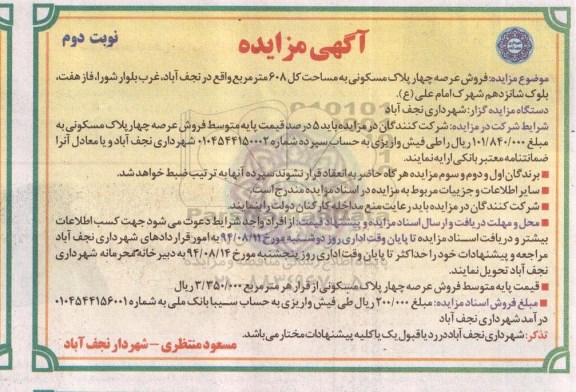 نوبت دوم
آگهی مزایده
موضوع مزایده: فروش عرصه چهار پلاک مسکونی به مساحت کل ۶۰۸ متر مربع واقع در نجف آباد، غرب بلوار شورا، فاز هفت،
بلوک شانزدهم شهرک امام علی (ع).
دستگاه مزایده گزار: شهرداری نجف آباد
شرایط شرکت در مزایده: شرکت کنندگان در مزایده باید ۵ درصد قیمت پایه متوسط فروش عرصه چهار پلاک مسکونی به
مبلغ ۱۰۱/۸۴۰/۰۰۰ ریال را طی فیش واریزی به حساب سپرده شماره ۰۱۰۴۵۴۴۱۵۰۰۰۲ شهرداری نجف آباد و یا معادل آنرا
ضمانتنامه معتبر بانکی ارایه نمایند.
- برندگان اول و دوم و سوم مزایده هر گاه حاضر به انعقاد قرار نشوند سپرده آنها به ترتیب ضبط خواهد شد.
- سایر اطلاعات و جزییات مربوط به مزایده در اسناد مزایده مندرج است.
- شرکت کنندگان در مزایده باید رعایت منع مداخله کارکنان دولت را بنمایند.
- محل و مهلت دریافت و ارسال اسناد مزایده و پیشنهاد قیمت: از افراد واجد شرایط دعوت می شود جهت کسب اطلاعات
بیشتر و دریافت اسناد مزایده تا پایان وقت اداری روز دوشنبه مورخ ۹۴/۰۸/۱۱ به امور قراردادهای شهرداری نجف آباد
مراجعه و پیشنهادات خود را حداکثر تا پایان وقت اداری روز پنجشنبه مورخ ۹۴/۰۸/۱۴ به دبیرخانه محرمانه شهرداری
نجف آباد تحویل نمایند.
- قیمت پایه متوسط فروش عرصه چهار پلاک مسکونی از قرار هر متر مربع ۳/۳۵۰/۰۰۰ ریال
- مبلغ فروش اسناد مزایده: مبلغ ۲۰۰/۰۰۰ ریال طی فیش واریزی به حساب سیبا بانک ملی به شماره ۰۱۰۴۵۴۴۱۵۶۰۰۱
درآمد شهرداری نجف آباد
تذکر: شهرداری نجف آباد در رد یا قبول یک یا کلیه پیشنهادات مختار می باشد.
مسعود منتظری - شهردار نجف آباد